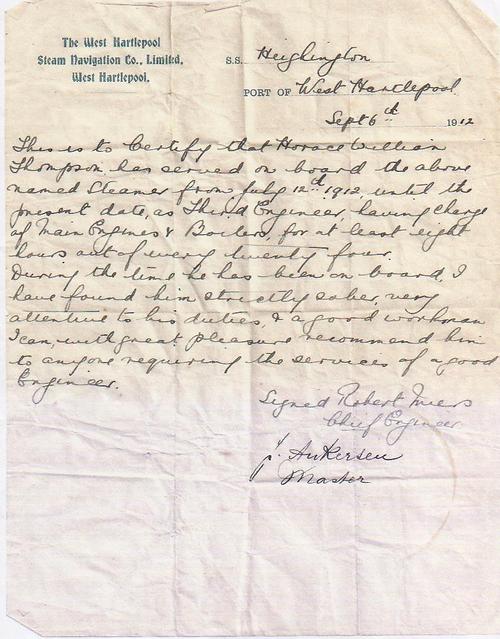 The West Hartlepool
Steam Navigation Co., Limited,
West Hartlepool.
S.S. Heighington
PORT OF West Hartlepool
Sept 6th 1912
This is to Certify that Horace William
Thompson has served on board the above
named Steamer from July 12th 1912 until the
present date, as Third Engineer, having charge
of Main Engines & Boilers, for at least eight
hours out of every twenty four.
During the time he has been on board, I
have found him strictly sober, very
attentive to his duties, & a good workman
I can, with great pleasure recommend him
to anyone requiring the services of a good
Engineer.
Signed Robert
Chief Engineer
J. Ankersen
Master